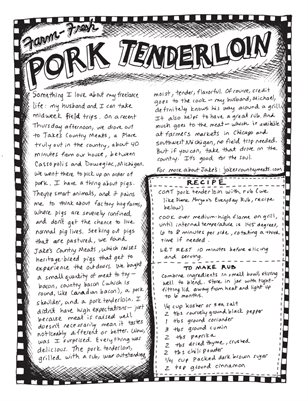 Farm-Fresh
PORK TENDERLOIN
Something I love about my freelance
life: my husband and I can take
midweek field trips. On a recent
Thursday afternoon, we drove out
to Jake's Country Meats, a place
truly out in the country, about 40
minutes from our house, between
Cassopolis and Dowagiac, Michigan.
We went there to pick up an order of
pork. I have a thing about pigs.
They're smart animals, and it pains
me to think about factory hog farms,
where pigs are severely confined
and don't get the chance to live
normal pig lives. Seeking out pigs
that are pastured, we found
Jake's Country Meats, which raises
heritage-breed pigs that get to
experience the outdoors. We bought
a small quantity of meat to try—
bacon, country bacon (which is
round, like Canadian bacon), a pork
shoulder, and a pork tenderloin. I
didn't have high expectations—just
because meat is raised well
doesn't necessarily mean it tastes
noticeably different or better. Wow,
was I surprised. Everything was
delicious. The pork tenderloin,
grilled with a rub, was outstanding:
moist, tender, flavorful. Of course, credit
goes to the cook—my husband, Michael,
definitely knows his way around a grill.
It also helps to have a great rub. And
much goes to the meat—which is available
at farmers markets in Chicago and
southwest Michigan, no field trip needed.
But if you can, take that drive in the
country. It's good for the soul.
For more about Jake's: jakescountrymeats.com
RECIPE
COAT pork tenderloin with rub (we
like Diane Morgan's Everyday Rub, recipe
below)
COOK over medium-high flame on grill,
until internal temperature is 145 degrees,
6 to 8 minutes per side, rotating a third
time if needed
LET REST 10 minutes before slicing
and serving.
TO MAKE RUB
Combine ingredients in small bowl, stirring
well to blend. Store in jar with tight-
fitting lid, away from heat and light up
to 6 months.
1/4 cup kosher or sea salt
2 tbs coarsely ground black pepper
1 tbs ground coriander
1 tbs ground cumin
2 tbs paprika
2 tbs dried thyme, crushed
2 tbs chili powder
1/4 cup packed dark brown sugar
2 tsp ground cinnamon